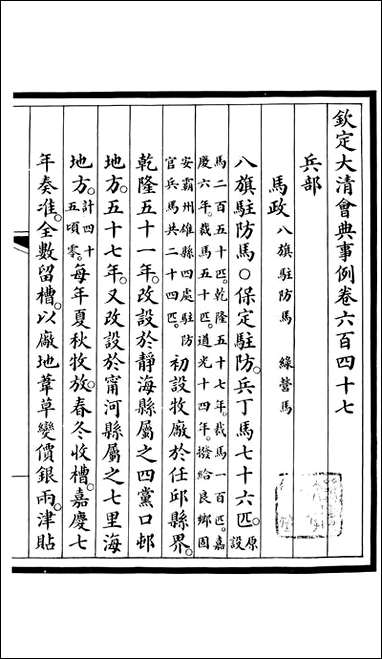 欽定大清會典事例卷六百四十七
兵部
馬政 八旗駐防馬 綠營馬
八旗駐防馬○保定駐防。兵丁馬七十六匹。原設
馬二百五十匹。乾隆五十七年。裁馬一百匹。嘉
慶六年。裁馬五十匹。道光十四年。撥給良鄉固
安霸州雄縣四處駐防
官兵馬共二十四匹。初設牧廠於任邱縣界。
乾隆五十一年。改設於靜海縣屬之四黨口邨
地方。五十七年。又改設於甯河縣屬之七里海
地方。計四十五頃零。每年夏秋牧放。春冬收槽。嘉慶七
年奏准。全數留槽。以廠地葦草變價銀兩。津貼